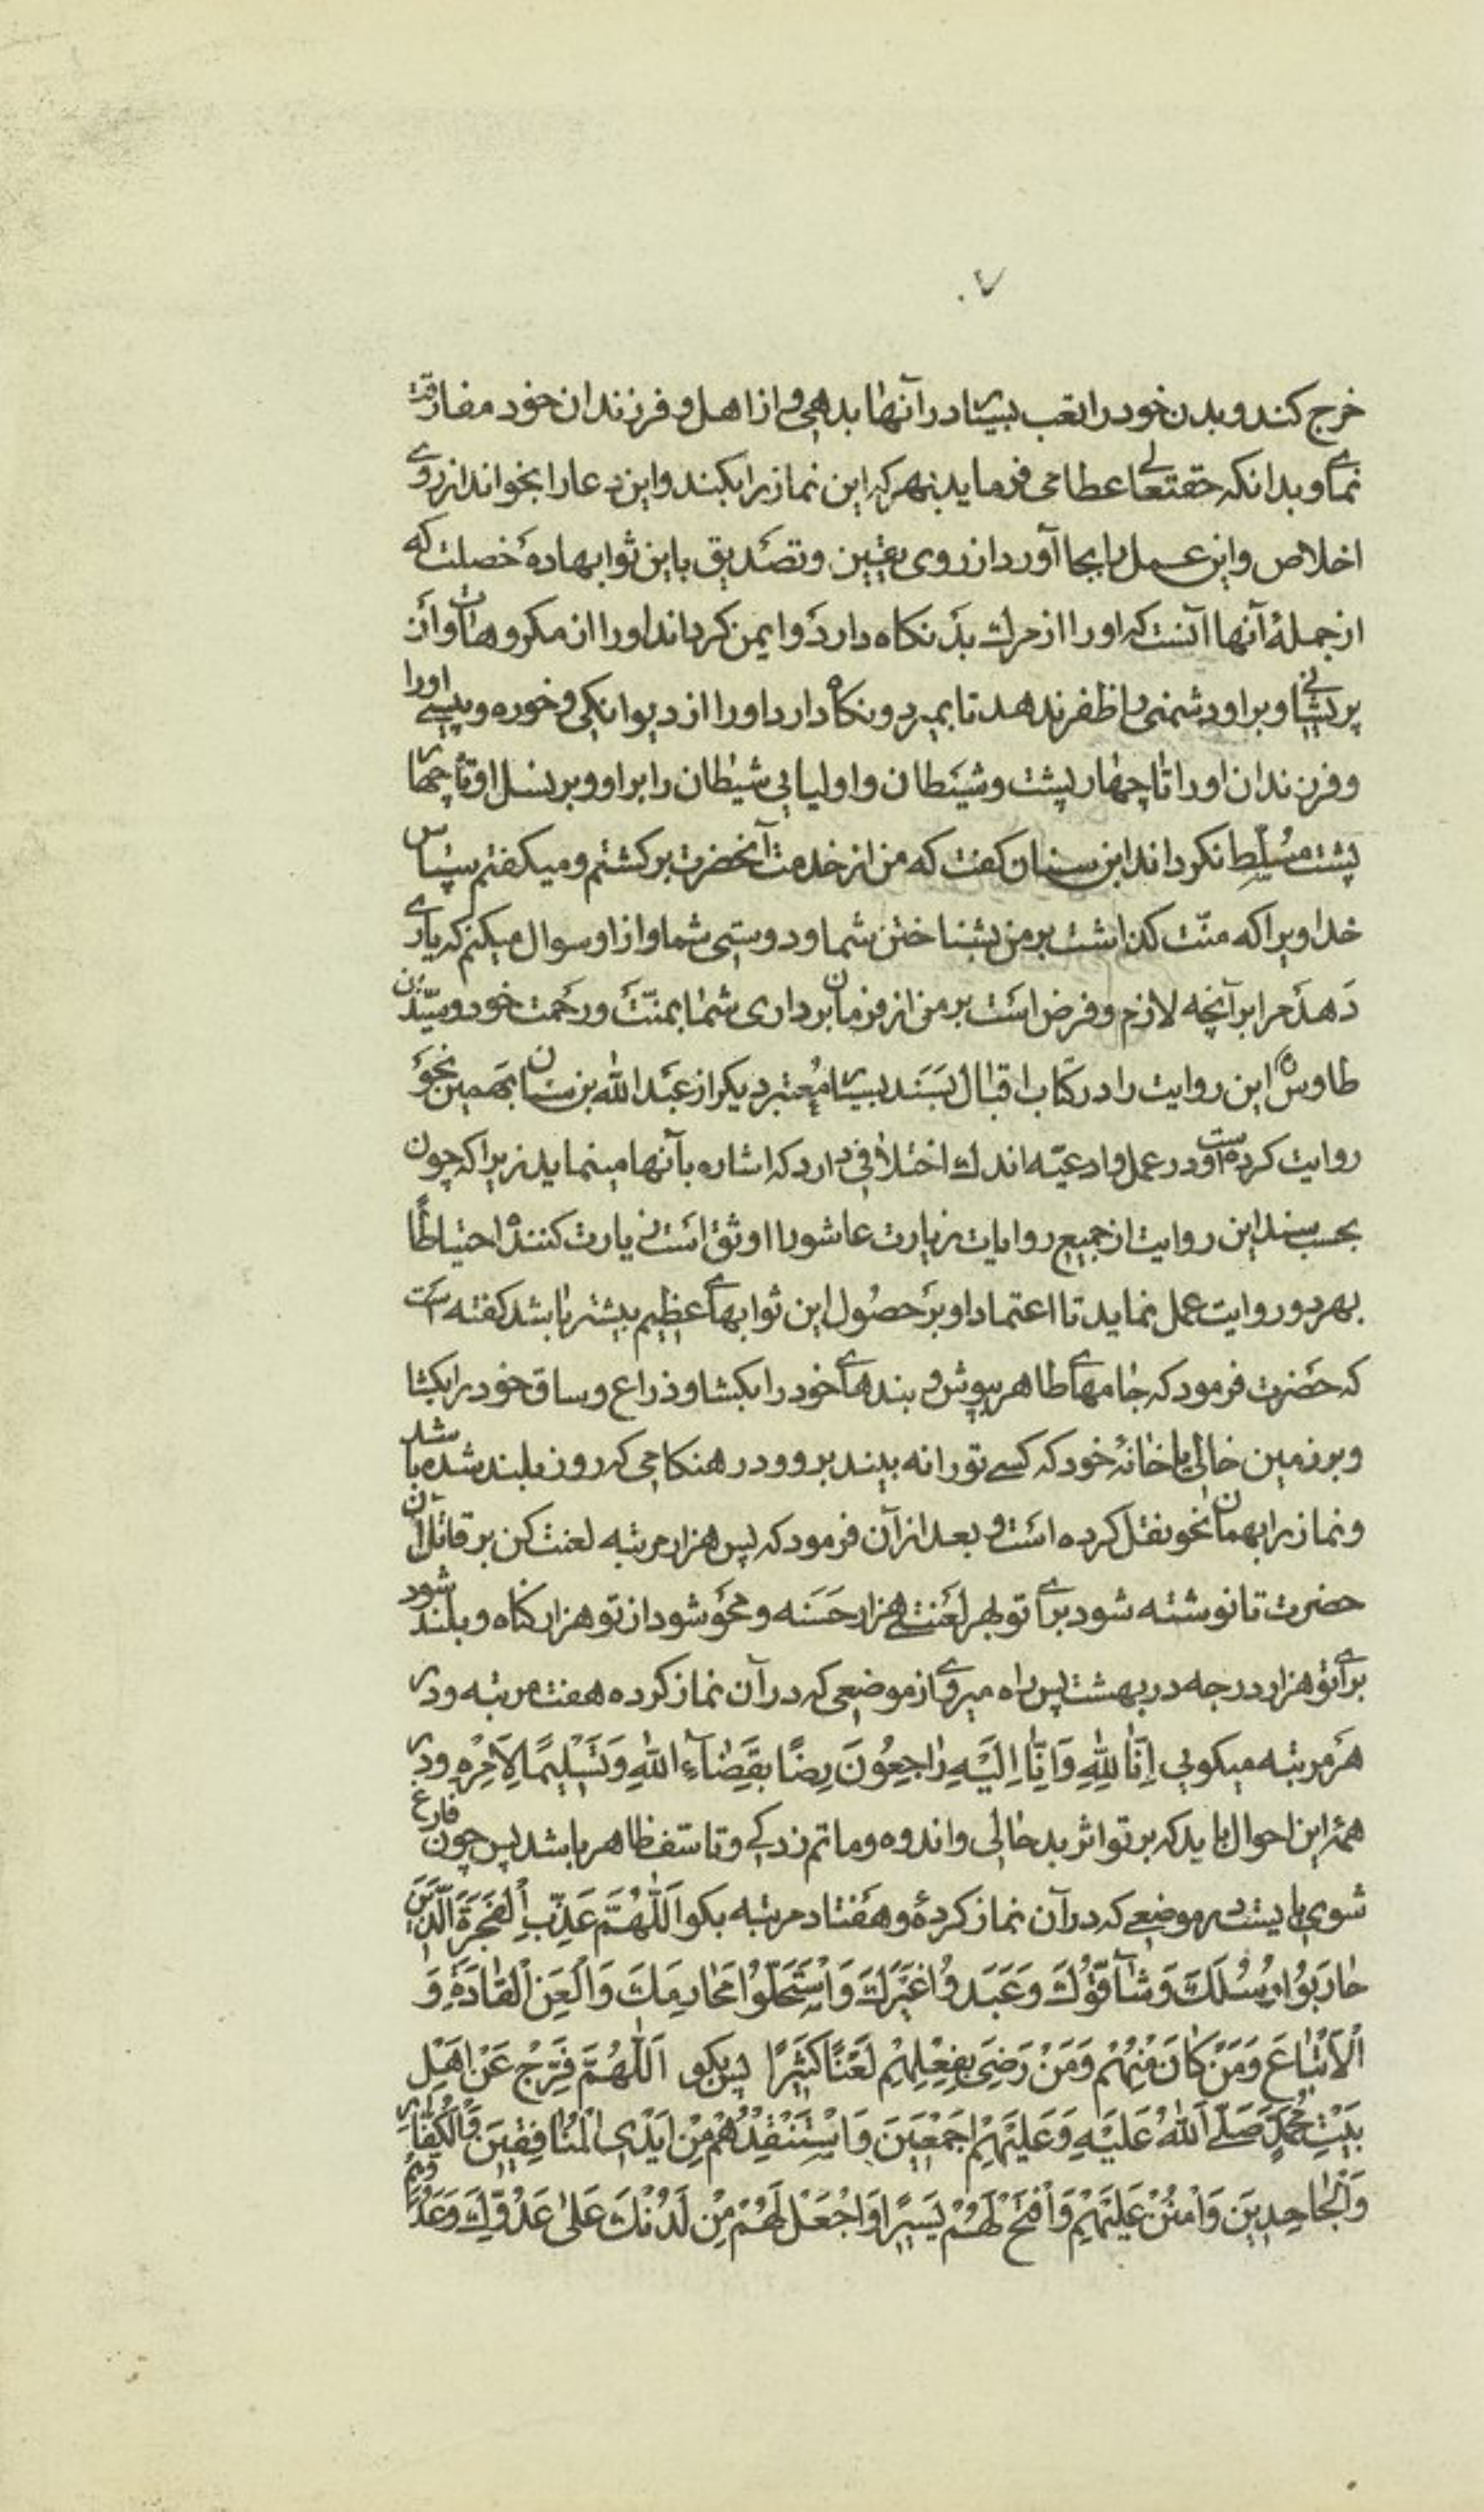 ۷۰
خرج کند و بدن خود را تعب بسیار در آنها بدهی و از اهل و فرزندان خود مفارقت
نمای و بدانکه حقتعالی عطا می فرماید بهر که این نماز را بکند و این دعا را بخواند از روی
اخلاص و این عمل را بجا آورد از روی یقین و تصدیق باین ثوابها ده خصلت که
از جملهٔ آنها آنست که او را از مرك بد نکاه دارد و ایمن کرداند او را از مکروهات و از
پریشانی و بر او دشمنی را ظفر ندهد تا بمیرد و نکاه دارد او را از دیوانکی و خوره و پیسی او را
و فرزندان او را تا چهار پشت و شیطان و اولیایی شیطان را بر او و بر نسل او تا چهار
پشت مسلّط نکرداند ابن سنان کفت که من از خدمت آنحضرت برکشتم و میکفتم سپاس
خداویرا که منّت کذاشت بر من بشناختن شما و دوستی شما و از او سوال میکنم که یاری
دهد مرا بر آنچه لازم و فرض است بر من از فرمان برداری شما بمنّت و رحمت خود و سیّد بن
طاوس ره این روایت را در کتاب اقبال بسند بسیار معتبر دیکر از عبد الله بن سنان بهمین نحو
روایت کرده است و در عمل و ادعیّه اندك اختلافی دارد که اشاره بآنها مینماید زیرا که چون
بحسب سند این روایت از جمیع روایات زیارت عاشورا اوثق است زیارت کننده احتیاطًا
بهر دو روایت عمل نماید تا اعتماد او بر حصول این ثوابهای عظیم بیشتر باشد کفته است
که حضرت فرمود که جامهای طاهر بپوش و بندهای خود را بکشا و ذراع و ساق خود را بکشا
و بر زمین خالی یا خانهٔ خود که کسی تو را نه بیند برو و در هنکامی که روز بلند شده باشد
و نماز را بهمان نحو نقل کرده است و بعد از آن فرمود که پس هزار مرتبه لعنت کن بر قاتلان آن
حضرت تا نوشته شود برای تو بهر لعنتی هزار حَسَنه و محو شود از تو هزار کناه و بلند شود
برای تو هزار درجه در بهشت پس راه میروی از موضعی که در آن نماز کرده هفت مرتبه و در
هر مرتبه میکویی اِنّا لِلّٰهِ وَاِنّا اِلَیْهِ رٰاجِعُونَ رِضًا بِقَضٰآءِ اللّٰهِ وَتَسْلیمًا لِاَمْرِهِ و در
همهٔ این احوال باید که بر تو اثر بد حالی و اندوه و ماتم زدکی و تاسّف ظاهر باشد پس چون فارغ
شوی بایست در موضعی که در آن نماز کردهٔ و هفتاد مرتبه بکو اَللّٰهُمَّ عَذِّبِ الْفَجَرَةَ الَّذینَ
حٰارَبُوا رُسُلَكَ وَشٰآقُّوكَ وَعَبَدُوا غَیْرَكَ وَاسْتَحَلُّوا مَحٰارِمَكَ وَالْعَنِ الْقٰادَةَ وَ
الْاَتْبٰاعَ وَمَنْ كٰانَ مِنْهُمْ وَمَنْ رَضِیَ بِفِعْلِهِمْ لَعْنًا كَثیرًا پس بکو اَللّٰهُمَّ فَرِّجْ عَنْ اَهْلِ
بَیْتِ مُحَمَّدٍ صَلَّی اللّٰهُ عَلَیْهِ وَعَلَیْهِمْ اَجْمَعینَ وَاسْتَنْقِذْهُمْ مِنْ اَیْدِی الْمُنٰافِقینَ وَالْكُفّٰارِ
وَالْجٰاحِدینَ وَامْنُنْ عَلَیْهِمْ وَافْتَحْ لَهُمْ یَسیرًا وَاجْعَلْ لَهُمْ مِنْ لَدُنْكَ عَلٰی عَدُوِّكَ وَعَدُوِّهِمْ